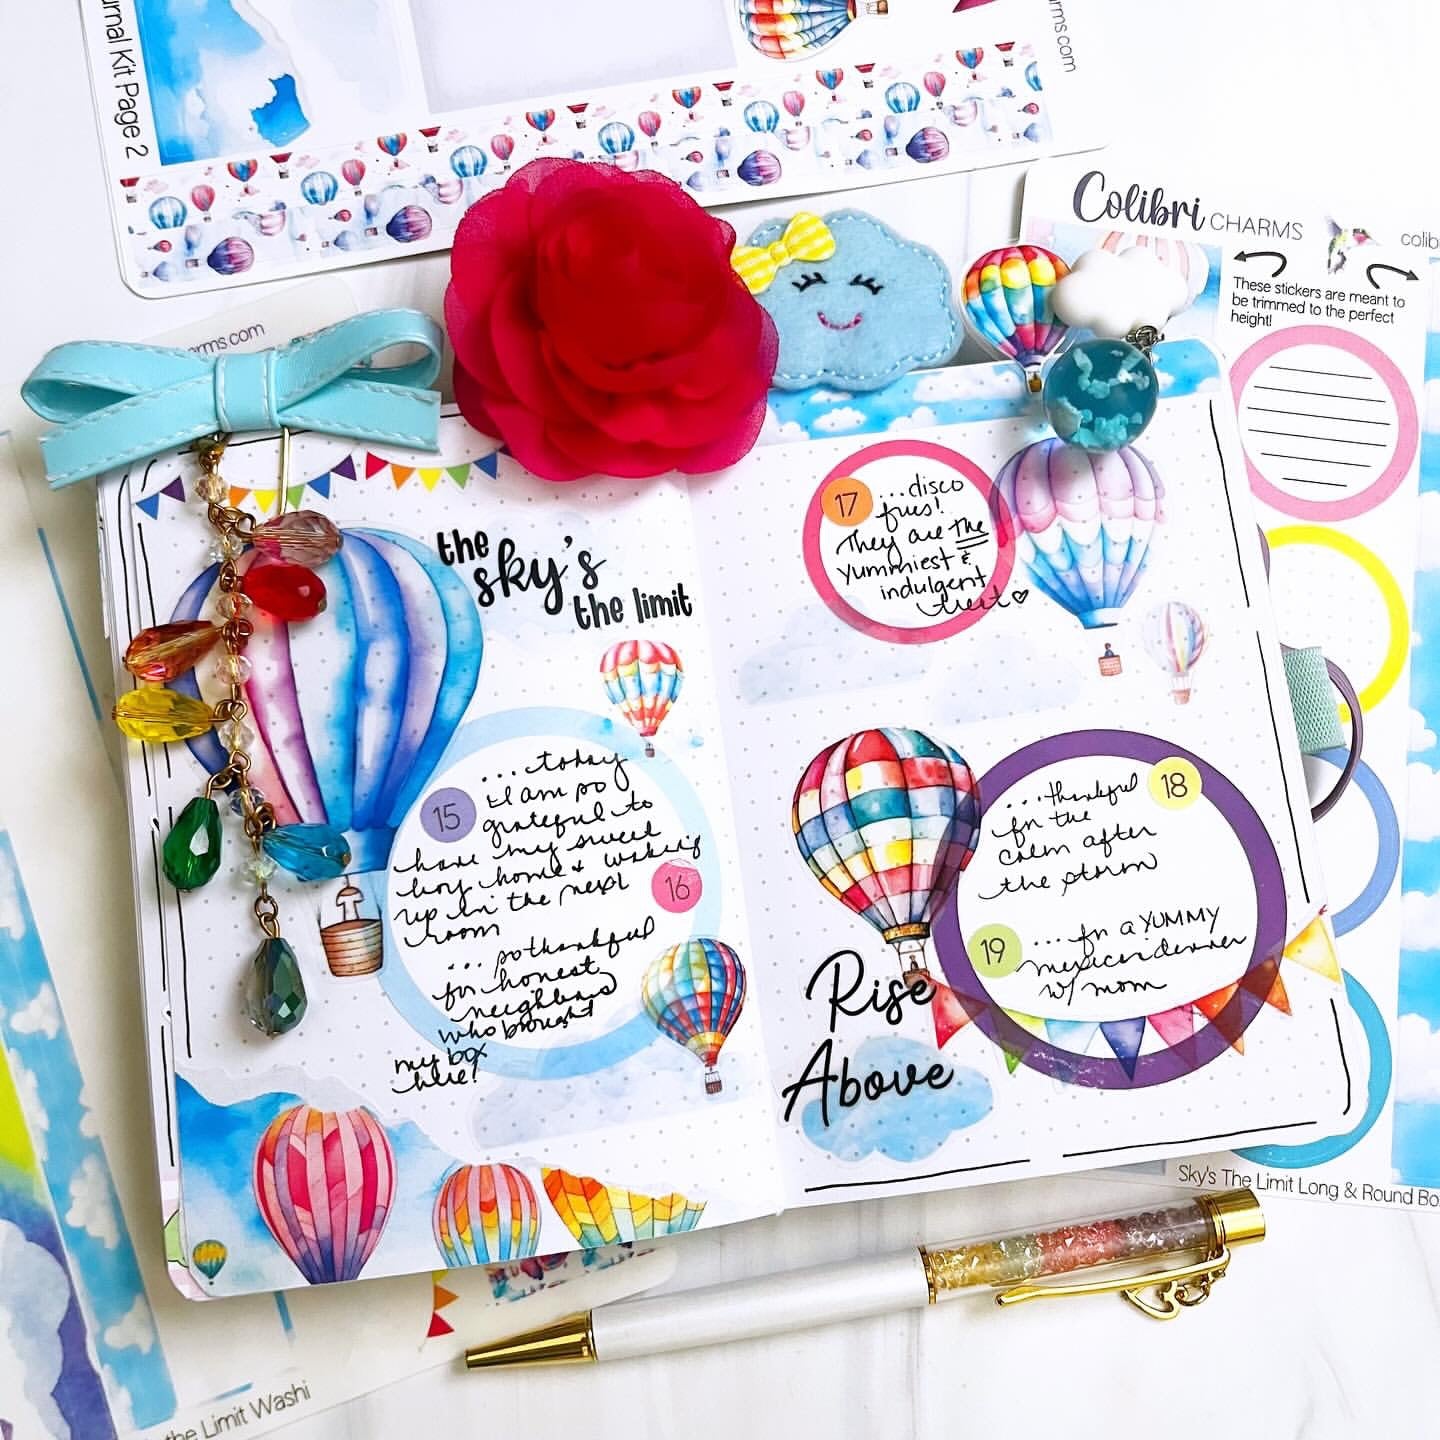 Journal Kit Page 2
rms.com
Colibri CHARMS
colib
These stickers are meant to
be trimmed to the perfect
height!
arms.com
the
sky's
the limit
15
...today
I am so
grateful to
have my sweet
boy home & waking
up in the next
room
16
... so thankful
for honest
neighbors
who brought
my box
here!
17
...disco
fries!
They are the
yummiest &
indulgent
treat
18
...thankful
for the
calm after
the storm
19
... for a YUMMY
mexican dinner
w/ mom
Rise
Above
Sky's The Limit Long & Round Bo
the Limit Washi